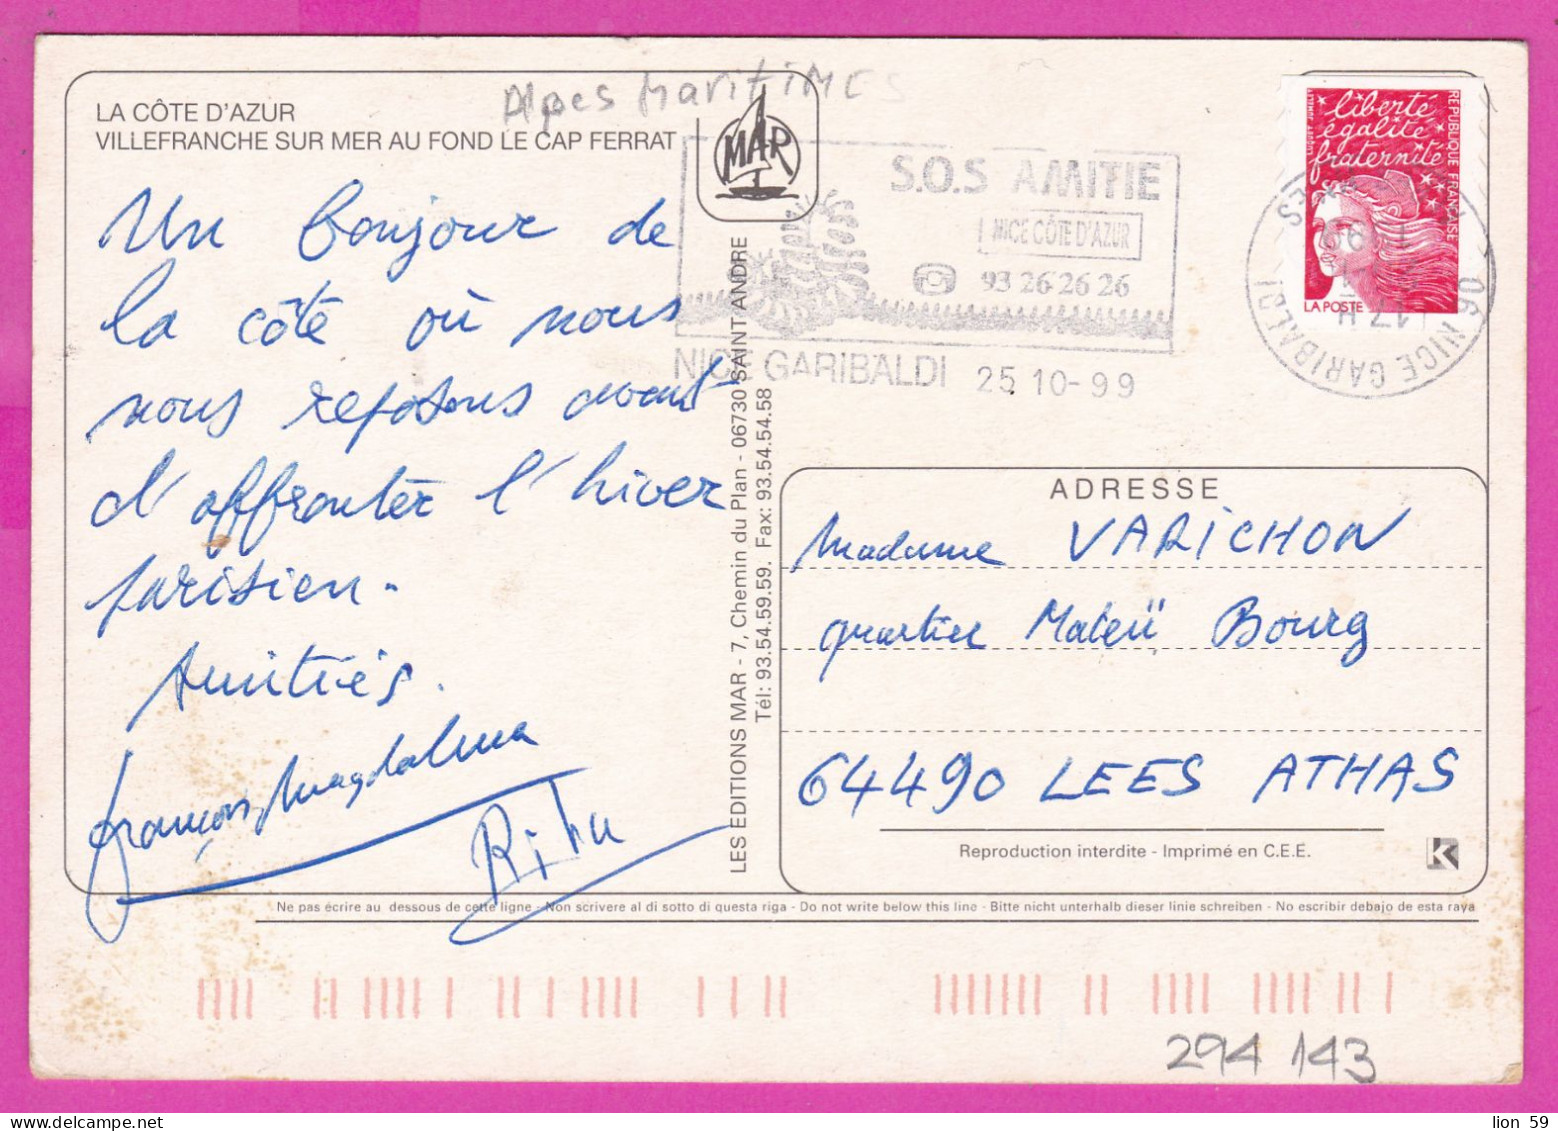 Alpes MaritiMES
LA CÔTE D'AZUR
VILLEFRANCHE SUR MER AU FOND LE CAP FERRAT
MAR
S.O.S AMITIE
NICE CÔTE D'AZUR
93 26 26 26
NICE GARIBALDI 25 10-99
liberté
égalité
fraternité
RÉPUBLIQUE FRANÇAISE
LA POSTE
06 NICE GARIBALDI
17 H
Un bonjour de
la côte où nous
nous reposons avant
d'affronter l'hiver
parisien.
Amitiés.
françois Magdalena
Rita
LES EDITIONS MAR - 7, Chemin du Plan - 06730 SAINT ANDRE
Tél: 93.54.59.59. Fax: 93.54.54.58
ADRESSE
Madame VARICHON
quartier Mateü Bourg
64490 LEES ATHAS
Reproduction interdite - Imprimé en C.E.E.
K
Ne pas écrire au dessous de cette ligne - Non scrivere al di sotto di questa riga - Do not write below this line - Bitte nicht unterhalb dieser linie schreiben - No escribir debajo de esta raya
294 143
lion 59